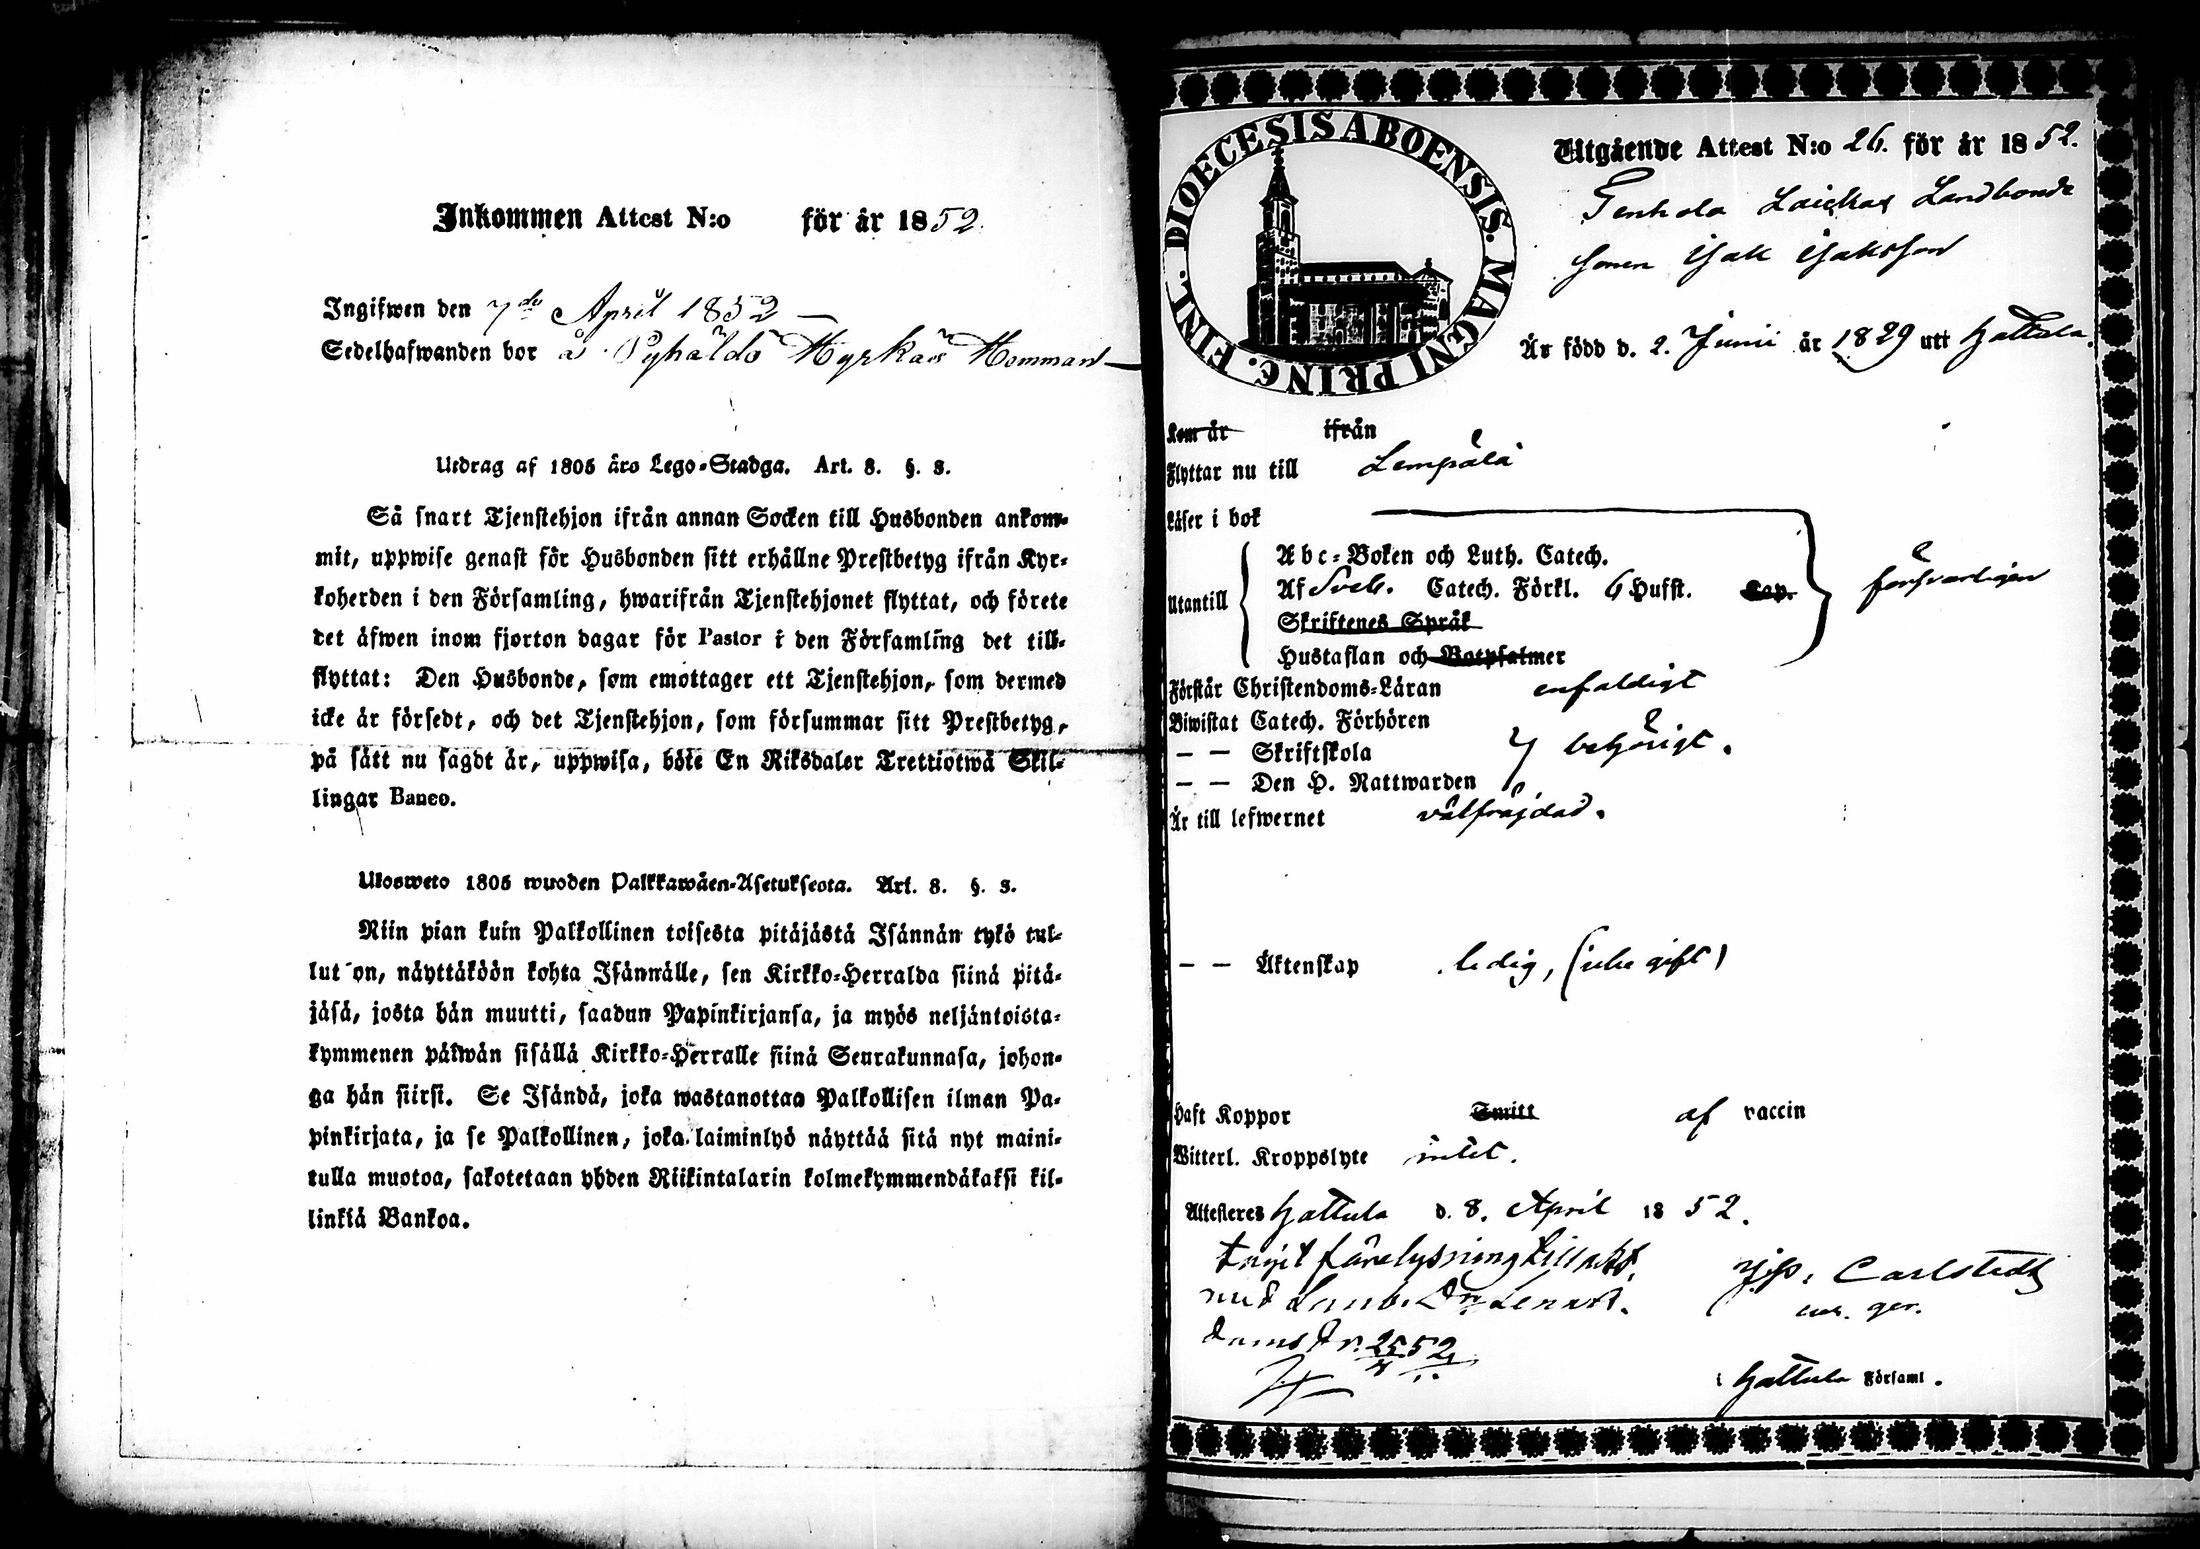 Inkommen Attest N:o för år 1852.
Ingifwen den 7de April 1852 —
Sedelhafwanden bor å Pyhäldö Hyrkäs Hemman —
Utdrag af 1805 års Lego-Stadga. Art. 8. §. 3.
Så snart Tjenstehjon ifrån annan Socken till Husbonden ankom-
mit, uppwise genast för Husbonden sitt erhållne Prestbetyg ifrån Kyr-
koherden i den Församling, hwarifrån Tjenstehjonet flyttat, och förete
det äfwen inom fjorton dagar för Pastor i den Församling det till-
flyttat: Den Husbonde, som emottager ett Tjenstehjon, som dermed
icke är försedt, och det Tjenstehjon, som försummar sitt Prestbetyg,
på sätt nu sagdt är, uppwisa, böte En Riksdaler Trettiotwå Skil-
lingar Banco.
Ulosweto 1805 wuoden Palkkawäen-Asetuksesta. Art. 8. §. 3.
Niin pian kuin Palkollinen toisesta pitäjästä Isännän tykö tul-
lut on, näyttäköön kohta Isännälle, sen Kirkko-Herralda siinä pitä-
jäsä, josta hän muutti, saadun Papinkirjansa, ja myös neljäntoista-
kymmenen päiwän sisällä Kirkko-Herralle siinä Seurakunnasa, johon-
ga hän siirsi. Se Isändä, joka wastanottaa Palkollisen ilman Pa-
pinkirjata, ja se Palkollinen, joka laiminlyö näyttää sitä nyt maini-
tulla muotoa, sakotetaan yhden Riikintalarin kolmekymmendäkaksi kil-
linkiä Bankoa.
DIOECESIS ABOENSIS. MAGNI PRINC. FINL.
Utgående Attest N:o 26. för år 1852.
Landbonde
sonen Isak Isaksson
Är född d. 2. Junii år 1829 uti Hattula.
Kom år ifrån
Flyttar nu till Lempälä
Läser i bok
Utantill
Abc-Boken och Luth. Catech.
Af Sveb. Catech. Förkl. 6 Hufst. Cap. försvarligen
Skriftenes Språk
Hustaflan och Botpsalmer
Förstår Christendoms-Läran enfaldigt
Biwistat Catech. Förhören
— — Skriftskola behörigt.
— — Den H. Nattwarden
Är till lefwernet välfräjdad.
— — Äktenskap ledig, (icke gift)
Haft Koppor Smitt af vaccin
Witterl. Kroppslyte intet.
Attesteres Hattula d. 8. April 1852.
lysning till äkt.
med
Carlstedt
Hattula Församl.